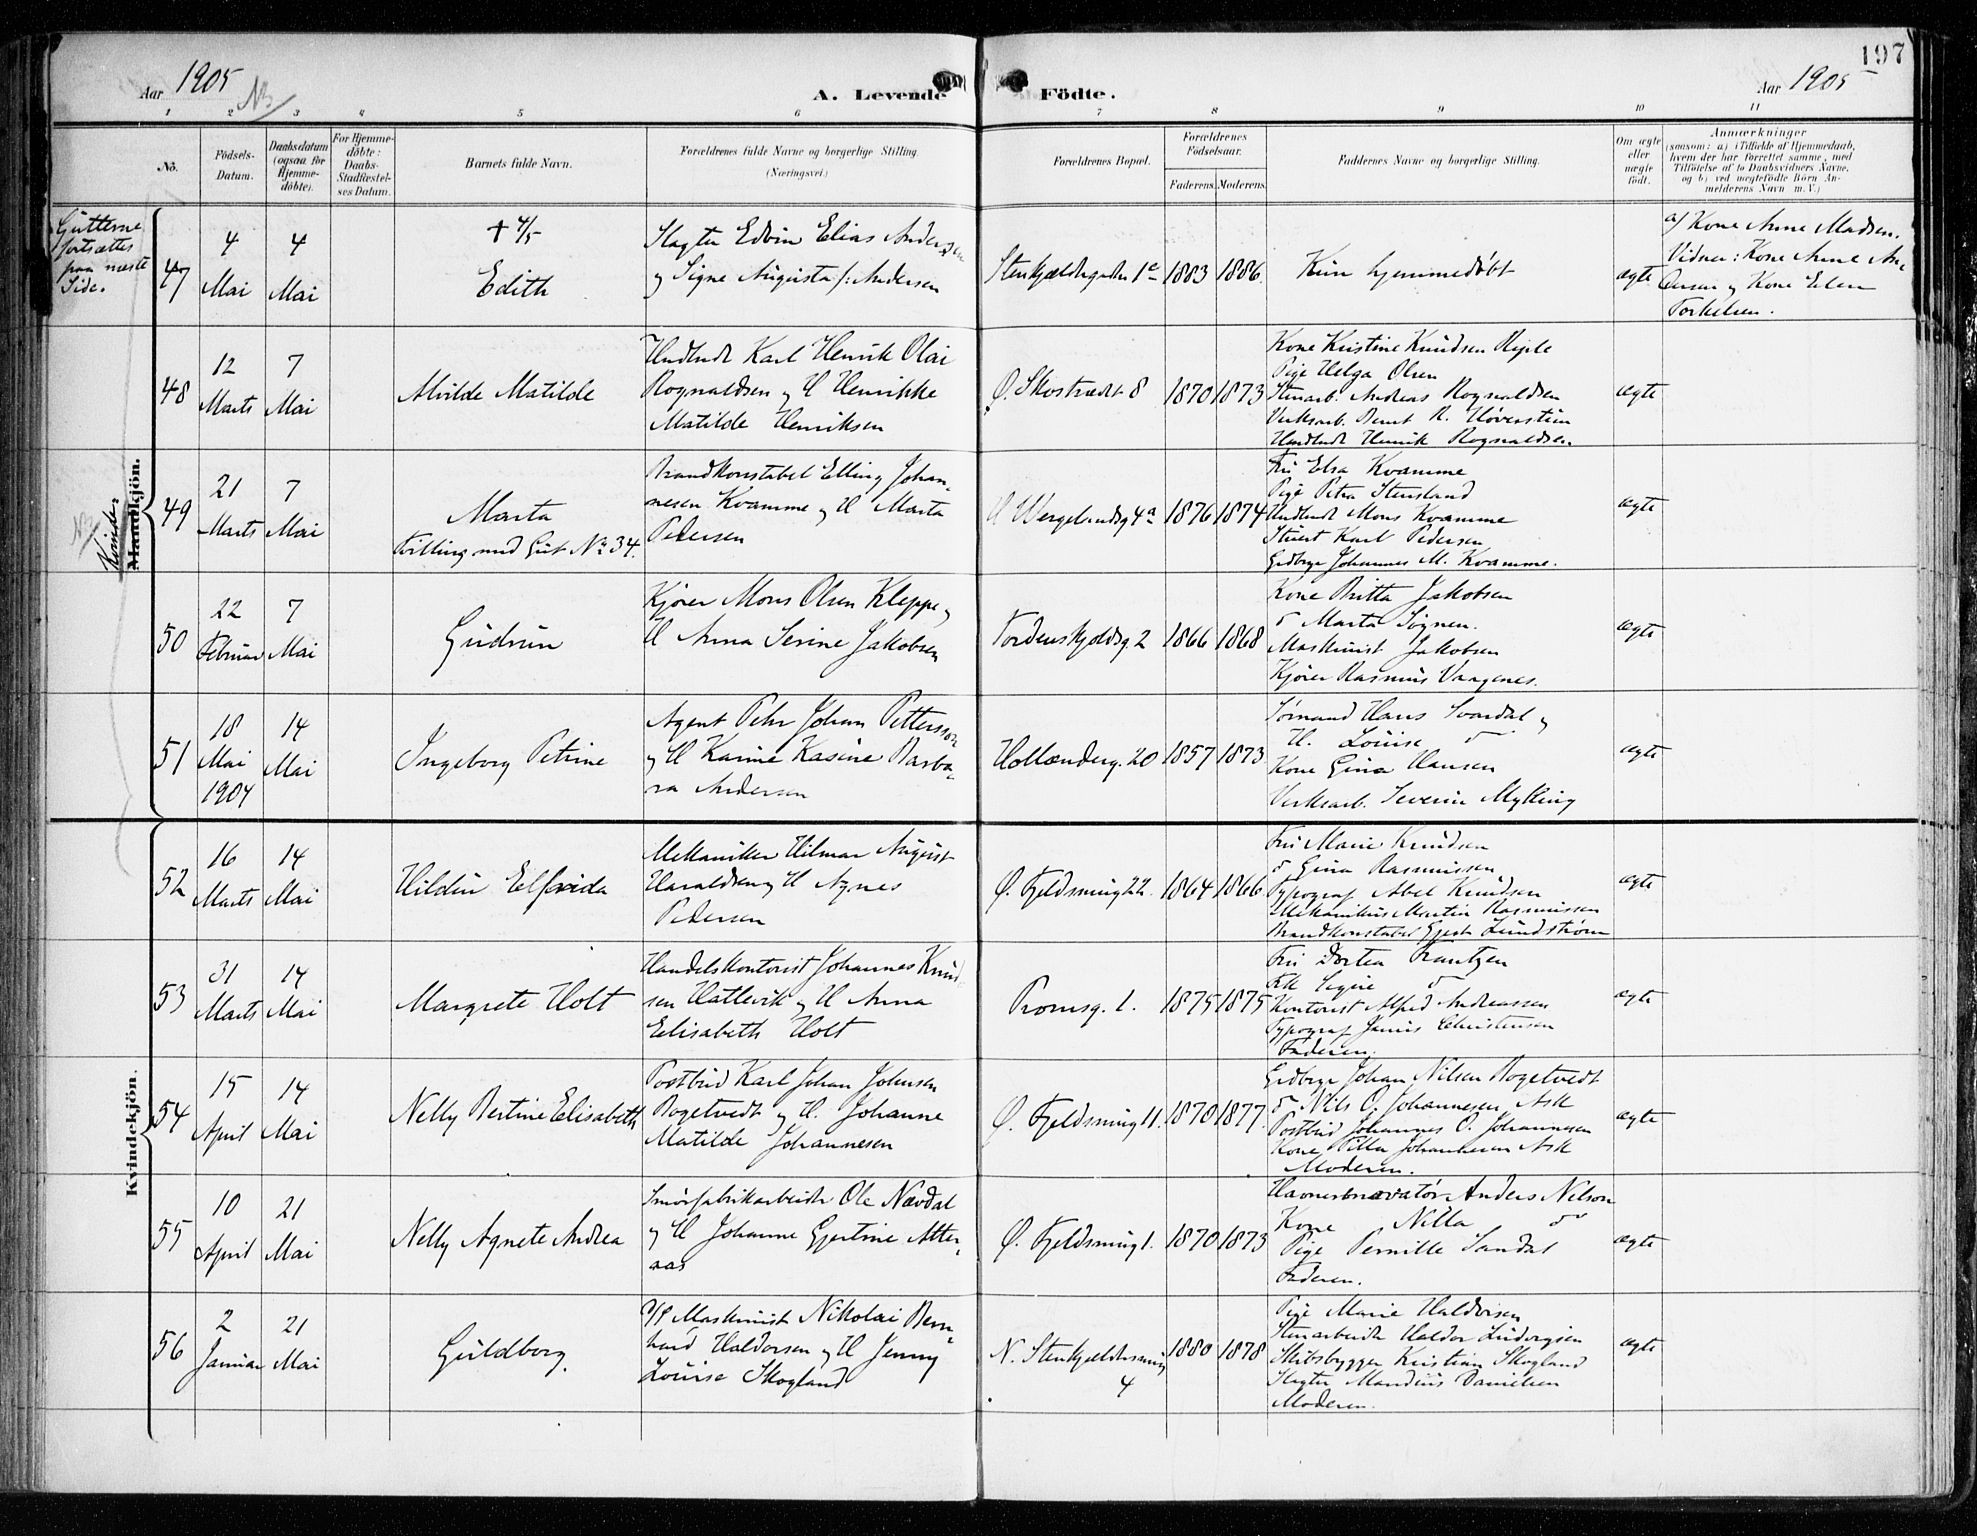 197
Aar 1905
NB/
A. Levende Födte.
Aar 1905
1 2 3 4 5 6 7 8 9 10 11
Nö.
Födsels-Datum.
Daabsdatum (ogsaa for Hjemmedöbte).
For Hjemmedöbte: Daabs-Stadfæstelses Datum.
Barnets fulde Navn.
Forældrenes fulde Navne og borgerlige Stilling.
(Næringsvei.)
Forældrenes Bopæl.
Forældrenes Födselsaar.
Faderens. Moderens.
Faddernes Navne og borgerlige Stilling.
Om ægte eller uægte födt.
Anmærkninger
(saasom: a) i Tilfælde af Hjemmedaab,
hvem der har forrettet samme, med
Tilföielse af to Daabsvidners Navne,
og b) ved uægtefödte Börn An-
melderens Navn m. V.)
Gutterne
fortsættes
paa næste
Side.
NB/
Kvinder
Mandkjön.
47
4
Mai
4
Mai
+ 4/5
Edith
Slagter Edvin Elias Andersen
og Signe Augusta f: Andersen
Stenkjeldergaden 1c
1883 1886
Kun hjemmedöbt
ægte
a/ Kone Anne Madsen.
Vidner: Kone Anne An-
dersen og Kone Elen
Torkelsen.
48
12
Marts
7
Mai
Alvilde Matilde
Karl Henrik Olai
Rognaldsen og H Henrikke
Matilde Henriksen
Ø. Skostrædet 8
1870 1873
Kone Kristine Knudsen Riple
Pige Helga Olsen
Stenarb. Andreas Rognaldsen
Verksarb. Bernt R. Høverstein
Henrik Rognaldsen
ægte
49
21
Marts
7
Mai
Marta
Tvilling med Gut No 34.
Brandkonstabel Elling Johan-
nesen Kvamme og H Marta
Pedersen
H Wergelandsg 4a
1876 1874
Fru Elsa Kvamme
Pige Petra Stensland
Mons Kvamme
Stuert Karl Pedersen
Grdbrgr Johannes M. Kvamme.
ægte
50
22
Februar
7
Mai
Gudrun
Kjörer Mons Olsen Kleppe og
H Anna Serine Jakobsen
Tordenskjoldsg. 2
1866 1868
Kone Britta Jakobsen
do Marta Sognen.
Maskinist Jakobsen
Kjörer Rasmus Vaagenes.
ægte
51
18
Mai
1904
14
Mai
Ingeborg Petrine
Agent Pehr Johan Pettersson
og H Karine Kasine Barba-
ra Andersen
Hollænderg. 20
1857 1873
Sömand Hans Svardal og
H. Louise do
Kone Gina Hansen
Verksarb. Severin Myking
ægte
Kvindekjön.
52
16
Marts
14
Mai
Hildur Elfrida
Mekaniker Hilmar August
Haraldsen og H Agnes
Pedersen
Ø. Fjeldsmug 22.
1864 1866
Fru Marie Knudsen
do Gina Rasmussen
Typograf Abel Knudsen
Mekanikus Martin Rasmussen
Brandkonstabel Gjert Lundström
ægte
53
31
Marts
14
Mai
Margrete Holt
Handelskontorist Johannes Knud-
sen Hatlevik og H Anna
Elisabeth Holt
Promsg. 1.
1875 1875
Fru Dortea Frantzen
Frk Signe do
Kontorist Alfred Andreassen
Typograf Janus Christensen
Faderen.
ægte
54
15
April
14
Mai
Nelly Bertine Elisabeth
Postbud Karl Johan Johnsen
Rogetvedt og H. Johanne
Matilde Johannesen
Ø. Fjeldsmug 11.
1870 1877.
Grdbrgr Johan Nilsen Rogetvedt
do Nils O. Johannesen Ask
Postbud Johannes O. Johannesen
Kone Johannesen Ask
Moderen.
ægte
55
10
April
21
Mai
Nelly Agnete Andrea
Smörfabrikarbeider Ole Nævdal
og H Johanne Gjertine Atter-
aas
Ø. Fjeldsmug 1.
1870 1873
Anders Nilson
Kone Nilla do
Pige Pernille Sandal
Faderen.
ægte
56
2
Januar
21
Mai
Guldborg.
Maskinist Nikolai Bern-
hard Haldorsen og H Jenny
Louise Skogland
N. Stenkjeldersmug
4
1880 1878
Pige Marie Haldorsen
Stenarbeider Haldor Ludvigsen
Skibsbygger Kristian Skogland
Slagter Mandius Danielsen
Moderen.
ægte